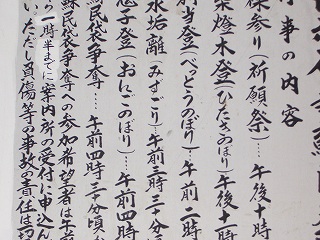 行事の内容
保参り(祈願祭)…午後十
柴燈木登(ひたきのぼり)午後十一時
別当登(べっとうのぼり)午前二時
水垢離(みずごり)…午前三時三十分
子登(おにごのぼり)…午前四時
民袋争奪…午前四時三十分頃
蘇民袋争奪への参加希望者は午前
一時半までに案内所の受付に申込ん
いただし負傷等の事故の責任は一切